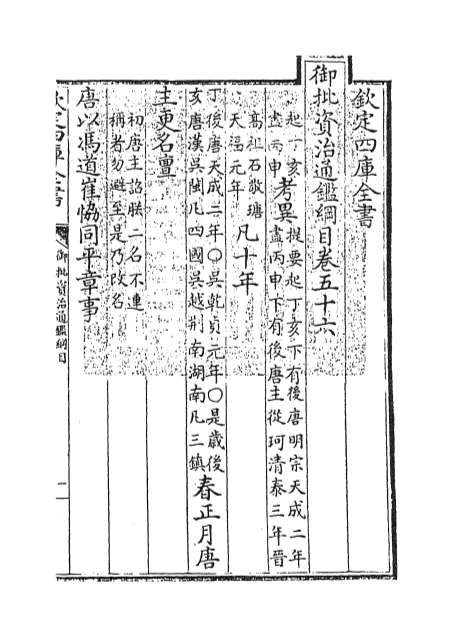 欽定四庫全書
御批資治通鑑綱目卷五十六
起丁亥
盡丙申
考異
提要起丁亥下有後唐明宗天成二年
盡丙申下有後唐主從珂清泰三年晉
高祖石敬瑭
天福元年
凡十年
丁後唐天成二年○吳乾貞元年○是歲後
亥唐漢吳閩凡四國吳越荆南湖南凡三鎮
春正月唐
主更名亶
初唐主詔朕二名不連
稱者勿避至是乃改名
唐以馮道崔協同平章事
欽定四庫全書
御批資治通鑑綱目